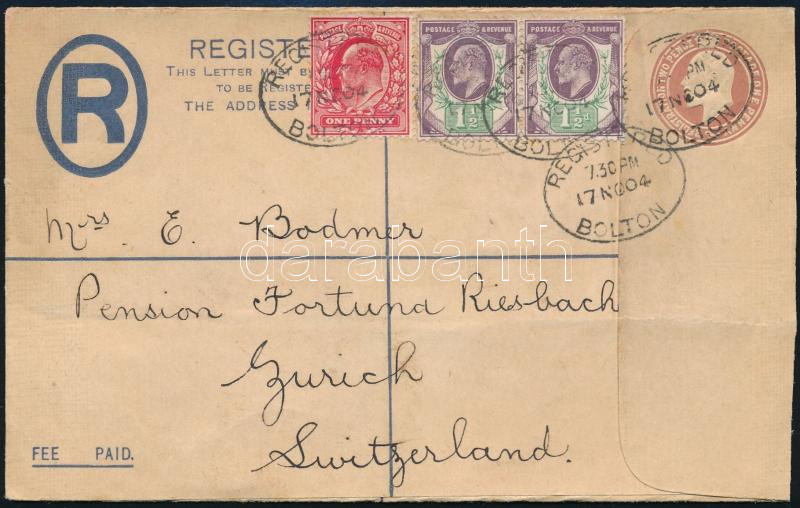 R
REGISTE
THIS LETTER MUST BE
TO BE REGISTE
THE ADDRESS
POSTAGE & REVENUE
ONE PENNY
POSTAGE & REVENUE
1½d
POSTAGE & REVENUE
1½d
REGISTERED
17 NO 04
BOLTON
REGISTERED
PM
17 NO 04
BOLTON
REGISTERED
7.30 PM
17 NO 04
BOLTON
Mrs E. Bodmer
darabanth
Pension Fortuna Riesbach
Zurich
Switzerland.
FEE PAID.